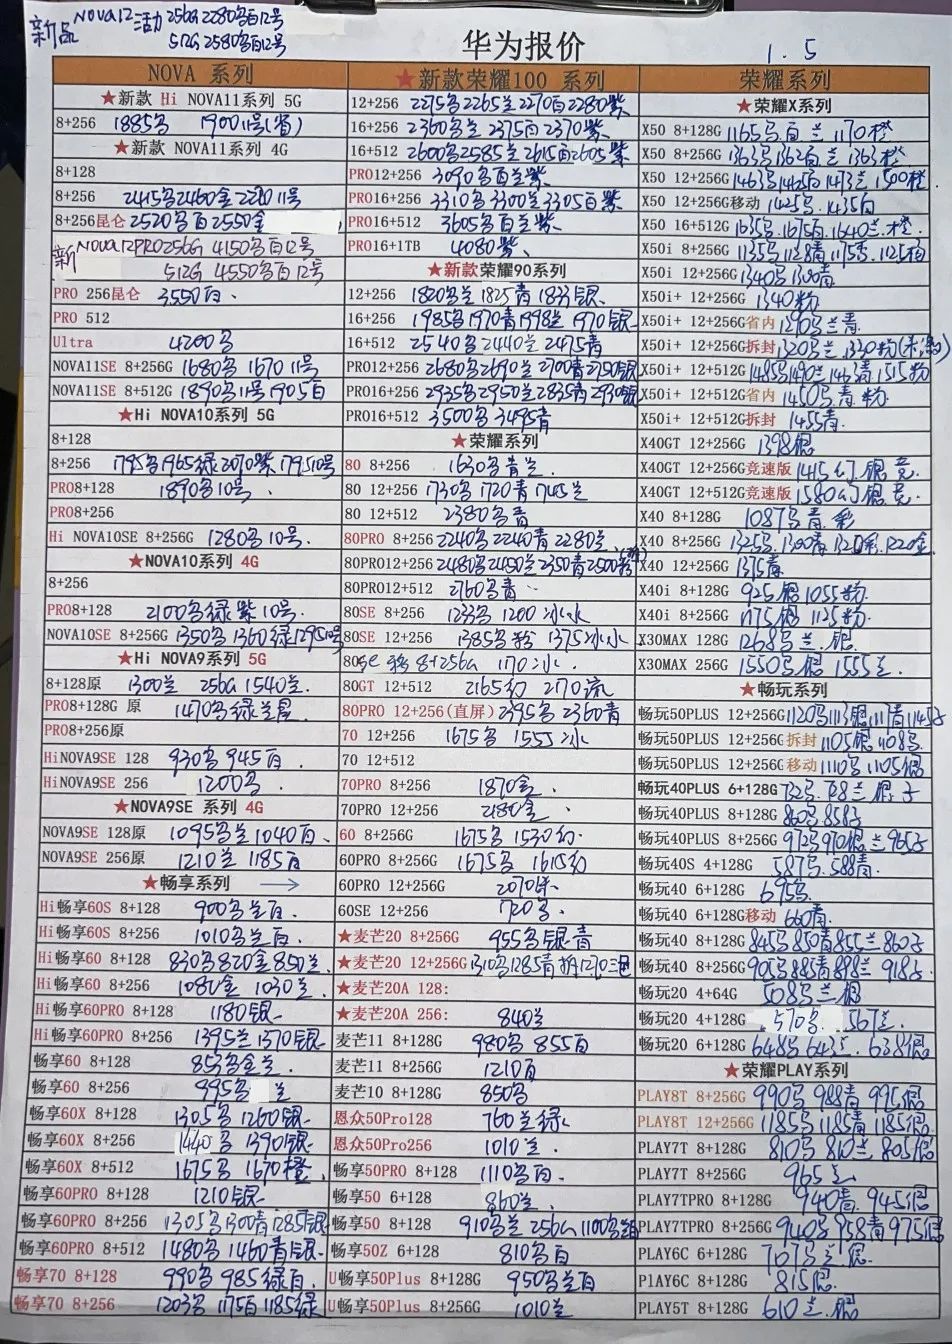 新品 NOVA12活力 256G 2280多百12号
512G 2580多百12号
华为报价
1.5
NOVA 系列
★新款 Hi NOVA11系列 5G
8+256 1885多 1900 11号(省)
★新款 NOVA11系列 4G
8+128
8+256 2415多2460金2220 11号
8+256昆仑 2520多百2550金
新 NOVA12PRO256G 4150多百12号
512G 4550多百12号
PRO 256昆仑 3550百
PRO 512
Ultra 4200多
NOVA11SE 8+256G 1680多 1670 11号
NOVA11SE 8+512G 1890多11号1905百
★Hi NOVA10系列 5G
8+128
8+256 1795多1965绿2070紫1795 10号
PRO8+128 1890多10号
PRO8+256
Hi NOVA10SE 8+256G 1280多10号
★NOVA10系列 4G
8+256
PRO8+128 2100多绿紫10号
NOVA10SE 8+256G 1350多1360绿1295 10号
★Hi NOVA9系列 5G
8+128原 1300兰 256G 1540兰
PRO8+128G 原 1470多绿兰星
PRO8+256原
HiNOVA9SE 128 930多945百
HiNOVA9SE 256 1200多
★NOVA9SE 系列 4G
NOVA9SE 128原 1095多兰1040百
NOVA9SE 256原 1210兰1185百
★畅享系列 →
Hi畅享60S 8+128 900多兰百
Hi畅享60S 8+256 1010多兰百
Hi畅享60 8+128 830多820金850兰
Hi畅享60 8+256 1080金 1030兰
Hi畅享60PRO 8+128 1180银
Hi畅享60PRO 8+256 1395兰1370银
畅享60 8+128 855多金兰
畅享60 8+256 995多 兰
畅享60X 8+128 1305多1260银
畅享60X 8+256 1440多1390银
畅享60X 8+512 1675多1670橙
畅享60PRO 8+128 1210银
畅享60PRO 8+256 1305多1300青1285银
畅享60PRO 8+512 1480多1460青银
畅享70 8+128 990多985绿百
畅享70 8+256 1203多1175百1185绿
★新款荣耀100 系列
12+256 2275多2265兰2270百2280紫
16+256 2360多兰2375百2370紫
16+512 2600多2585兰2615百2605紫
PRO12+256 3090多百兰紫
PRO16+256 3310多3300兰3305百紫
PRO16+512 3605多百兰紫
PRO16+1TB 4080紫
★新款荣耀90系列
12+256 1820多兰1825青1833银
16+256 1985多1970青1998兰1970银
16+512 2540多2440兰2475青
PRO12+256 2680多2690兰2700青2750银
PRO16+256 2935多2950兰2835青2930银
PRO16+512 3500多3495青
★荣耀系列
80 8+256 1630多青兰
80 12+256 1730多1720青1745兰
80 12+512 2380多青
80PRO 8+256 2240多2240青2280兰
80PRO12+256 2480多2450兰2350青2500粉
80PRO12+512 2760多青
80SE 8+256 1233多 1200冰水
80SE 12+256 1385多粉1375冰水
80GT 12+512 2165幻 2170流
80PRO 12+256(直屏) 2395多2360青
70 12+256 1675多 1555冰
70 12+512
70PRO 8+256 1870金
70PRO 12+256 2180金
60 8+256G 1675多 1530幻
60PRO 8+256G 1675多 1615幻
60PRO 12+256G 2070
60SE 12+256 1720多
★麦芒20 8+256G 955多银青
★麦芒20 12+256G 1310多1285青
★麦芒20A 128:
★麦芒20A 256: 840兰
麦芒11 8+128G 980多 855百
麦芒11 8+256G 1210百
麦芒10 8+128G 850多
恩众50Pro128 760兰绿
恩众50Pro256 1010兰
畅享50PRO 8+128 1110多百
畅享50 6+128 860兰
畅享50 8+128 910多兰 256G 1100多百
畅享50Z 6+128 810多百
U畅享50Plus 8+128G 950多兰百
U畅享50Plus 8+256G 1010兰
荣耀系列
★荣耀X系列
X50 8+128G 1165多百兰1170橙
X50 8+256G 1363多1362百兰1363橙
X50 12+256G 1463多1462百1473兰1500橙
X50 12+256G移动 1425多1435百
X50 16+512G 1635多1675百1640兰橙
X50i 8+256G 1135多1128青1175杏1125柏
X50i 12+256G 1340多1300青
X50i+ 12+256G 1340粉
X50i+ 12+256G省内 1290多兰青
X50i+ 12+256G拆封 1320多兰1330粉
X50i+ 12+512G 1485多1490兰1463青1515粉
X50i+ 12+512G省内 1450多青粉
X50i+ 12+512G拆封 1455青
X40GT 12+256G 1398银
X40GT 12+256G竞速版 1415幻银竞
X40GT 12+512G竞速版 1580幻银竞
X40 8+128G 1087多青彩
X40 8+256G 1325多1300青1320彩1220金
X40 12+256G 1375青
X40i 8+128G 925银1055粉
X40i 8+256G 1175银1125粉
X30MAX 128G 1268多兰银
X30MAX 256G 1550多银1555兰
★畅玩系列
畅玩50PLUS 12+256G 1120多1113银1117青1145子
畅玩50PLUS 12+256G 拆封 1105银1108多
畅玩50PLUS 12+256G 移动 1110多1105银
畅玩40PLUS 6+128G 732多728兰银子
畅玩40PLUS 8+128G 860多858子
畅玩40PLUS 8+256G 972多970银兰965子
畅玩40S 4+128G 587多588青
畅玩40 6+128G 695多
畅玩40 6+128G移动 660青
畅玩40 8+128G 845多850青855兰860子
畅玩40 8+256G 905多885青898兰918子
畅玩20 4+64G 508多兰银
畅玩20 4+128G 570多 567兰
畅玩20 6+128G 648多643兰638银
★荣耀PLAY系列
PLAY8T 8+256G 990多988青995银
PLAY8T 12+256G 1185多1185青1185银
PLAY7T 8+128G 810多810兰805银
PLAY7T 8+256G 965兰
PLAY7TPRO 8+128G 940青945银
PLAY7TPRO 8+256G 940多958青975银
PLAY6C 6+128G 767多兰银
PlAY6C 8+128G 815银
PLAY5T 8+128G 610兰银